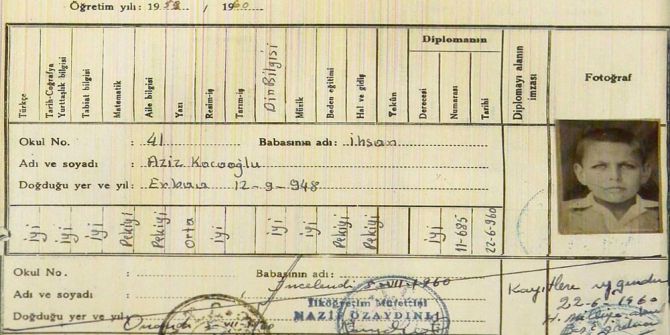 Öğretim yılı: 1959 / 1960
Türkçe
Tarih-Coğrafya Yurttaşlık bilgisi
Tabiat bilgisi
Matematik
Aile bilgisi
Yazı
Resim-iş
Tarım-iş
Din Bilgisi
Müzik
Beden eğitimi
Hal ve gidiş
Yekûn
Diplomanın
Derecesi
Numarası
Tarihi
Diplomayı alanın imzası
Fotoğraf
Okul No. : 41 Babasının adı: İhsan
Adı ve soyadı : Aziz Kocaoğlu
Doğduğu yer ve yıl: Erbaa 12-9-948
iyi iyi iyi Pekiyi Pekiyi Orta iyi iyi iyi Pekiyi Pekiyi iyi 11-685 22-6-960
Okul No. : Babasının adı:
İncelendi 5-VII-1960
Adı ve soyadı :
İlköğretim Müfettişi
NAZİF ÖZAYDINLI
Doğduğu yer ve yıl:
Onandı 5-VII-1960
Kayıtlere uygundur
22-6-1960